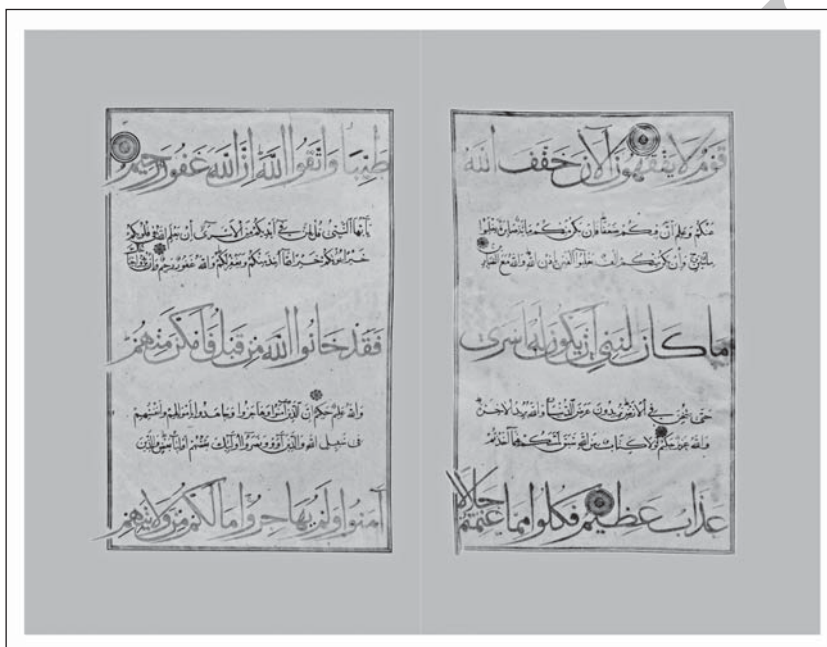 قوم لا يفقهون الآن خفف الله
عنكم وعلم أن فيكم ضعفا فإن يكن منكم مائة صابرة يغلبوا
مائتين وإن يكن منكم ألف يغلبوا ألفين بإذن الله والله مع الصابرين
ما كان لنبي أن يكون له أسرى
حتى يثخن في الأرض تريدون عرض الدنيا والله يريد الآخرة
والله عزيز حكيم لولا كتاب من الله سبق لمسكم فيما أخذتم
عذاب عظيم فكلوا مما غنمتم حلالا
طيبا واتقوا الله إن الله غفور رحيم
يا أيها النبي قل لمن في أيديكم من الأسرى إن يعلم الله في قلوبكم
خيرا يؤتكم خيرا مما أخذ منكم ويغفر لكم والله غفور رحيم وإن يريدوا
فقد خانوا الله من قبل فأمكن منهم
والله عليم حكيم إن الذين آمنوا وهاجروا وجاهدوا بأموالهم وأنفسهم
في سبيل الله والذين آووا ونصروا أولئك بعضهم أولياء بعض والذين
آمنوا ولم يهاجروا ما لكم من ولايتهم